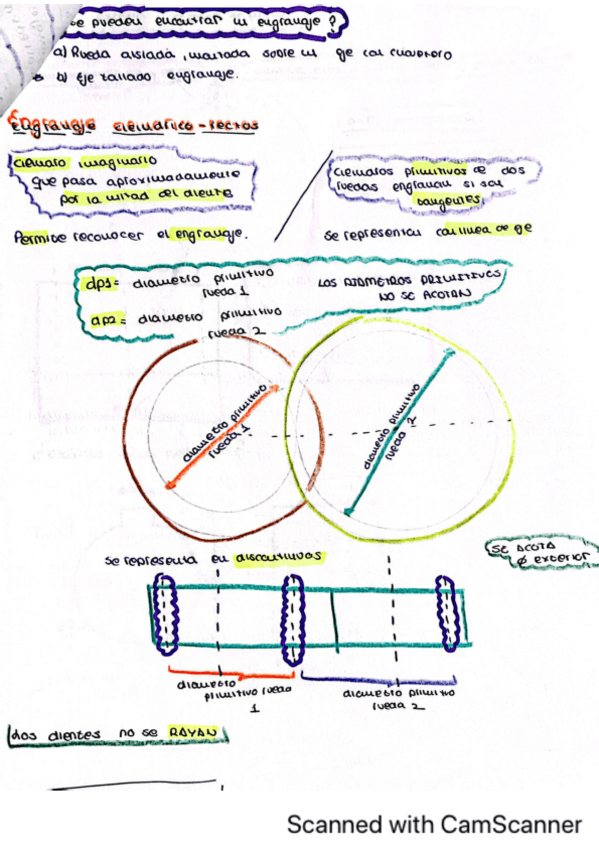 se pueden encontrar un engranaje?
a) Rueda aislada, montada sobre un eje con cuadrero
b) Eje tallado engranaje.
Engranaje cilíndrico-rectos
cilindro imaginario
que pasa aproximadamente
por la mitad del diente
Permite reconocer el engranaje.
cilindros primitivos de dos
ruedas engranan si son
tangentes
se representa con línea de eje
dp1= diametro primitivo
rueda 1
dp2= diametro primitivo
rueda 2
LOS DIAMETROS PRIMITIVOS
NO SE ACOTAN
diametro primitivo
rueda 1
diametro primitivo
rueda 2
se representa en discontinuos
SE ACOTA
ø exterior
diametro
primitivo rueda
1
diametro primitivo
rueda 2
los dientes no se RAYAN
Scanned with CamScanner